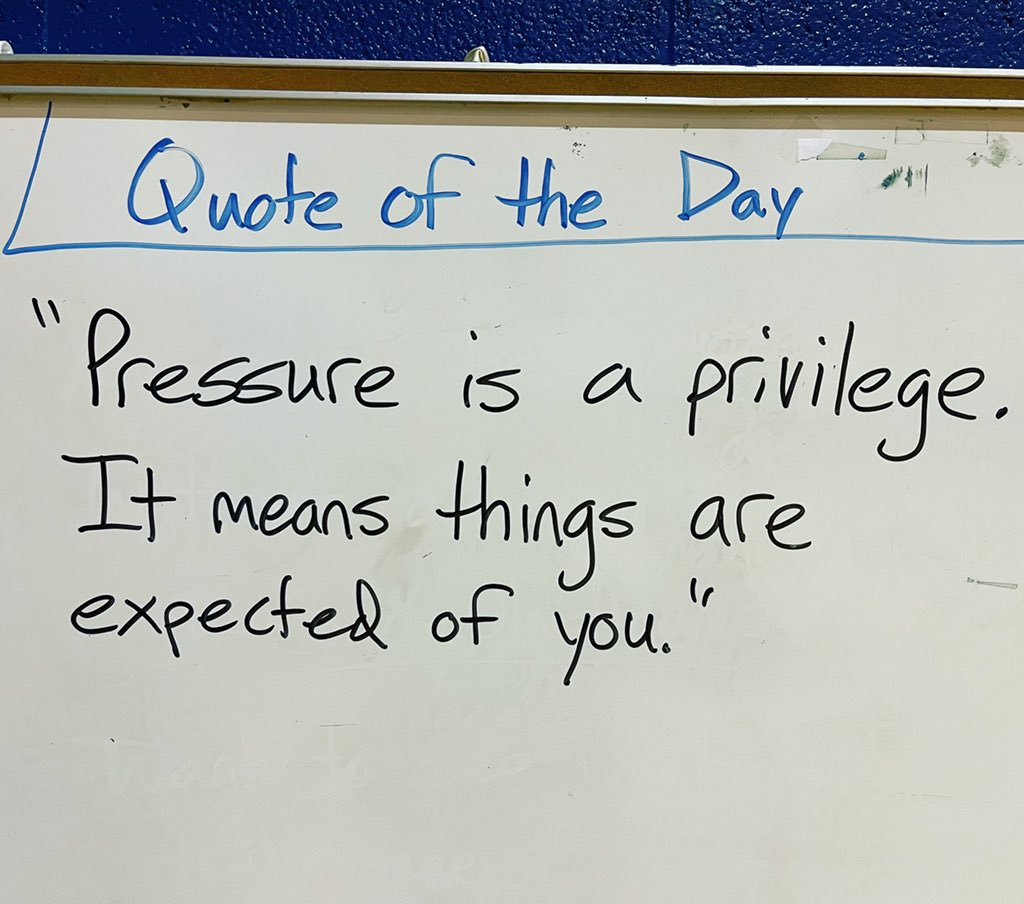 Quote of the Day
"Pressure is a privilege.
It means things are
expected of you."